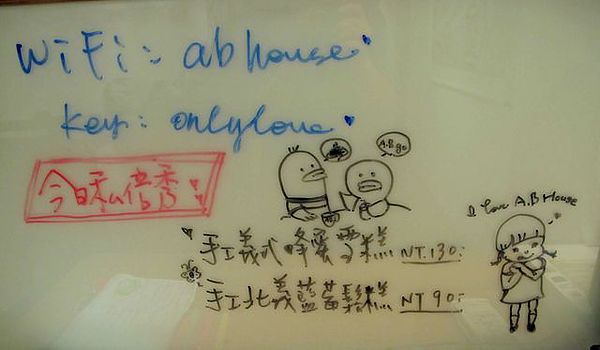 WiFi: abhouse
key: onlylove
A.B go
今日私倍秀
I love A.B House
手工義式蜂蜜雪糕 NT.130.
手工北義藍莓鬆糕 NT 90.